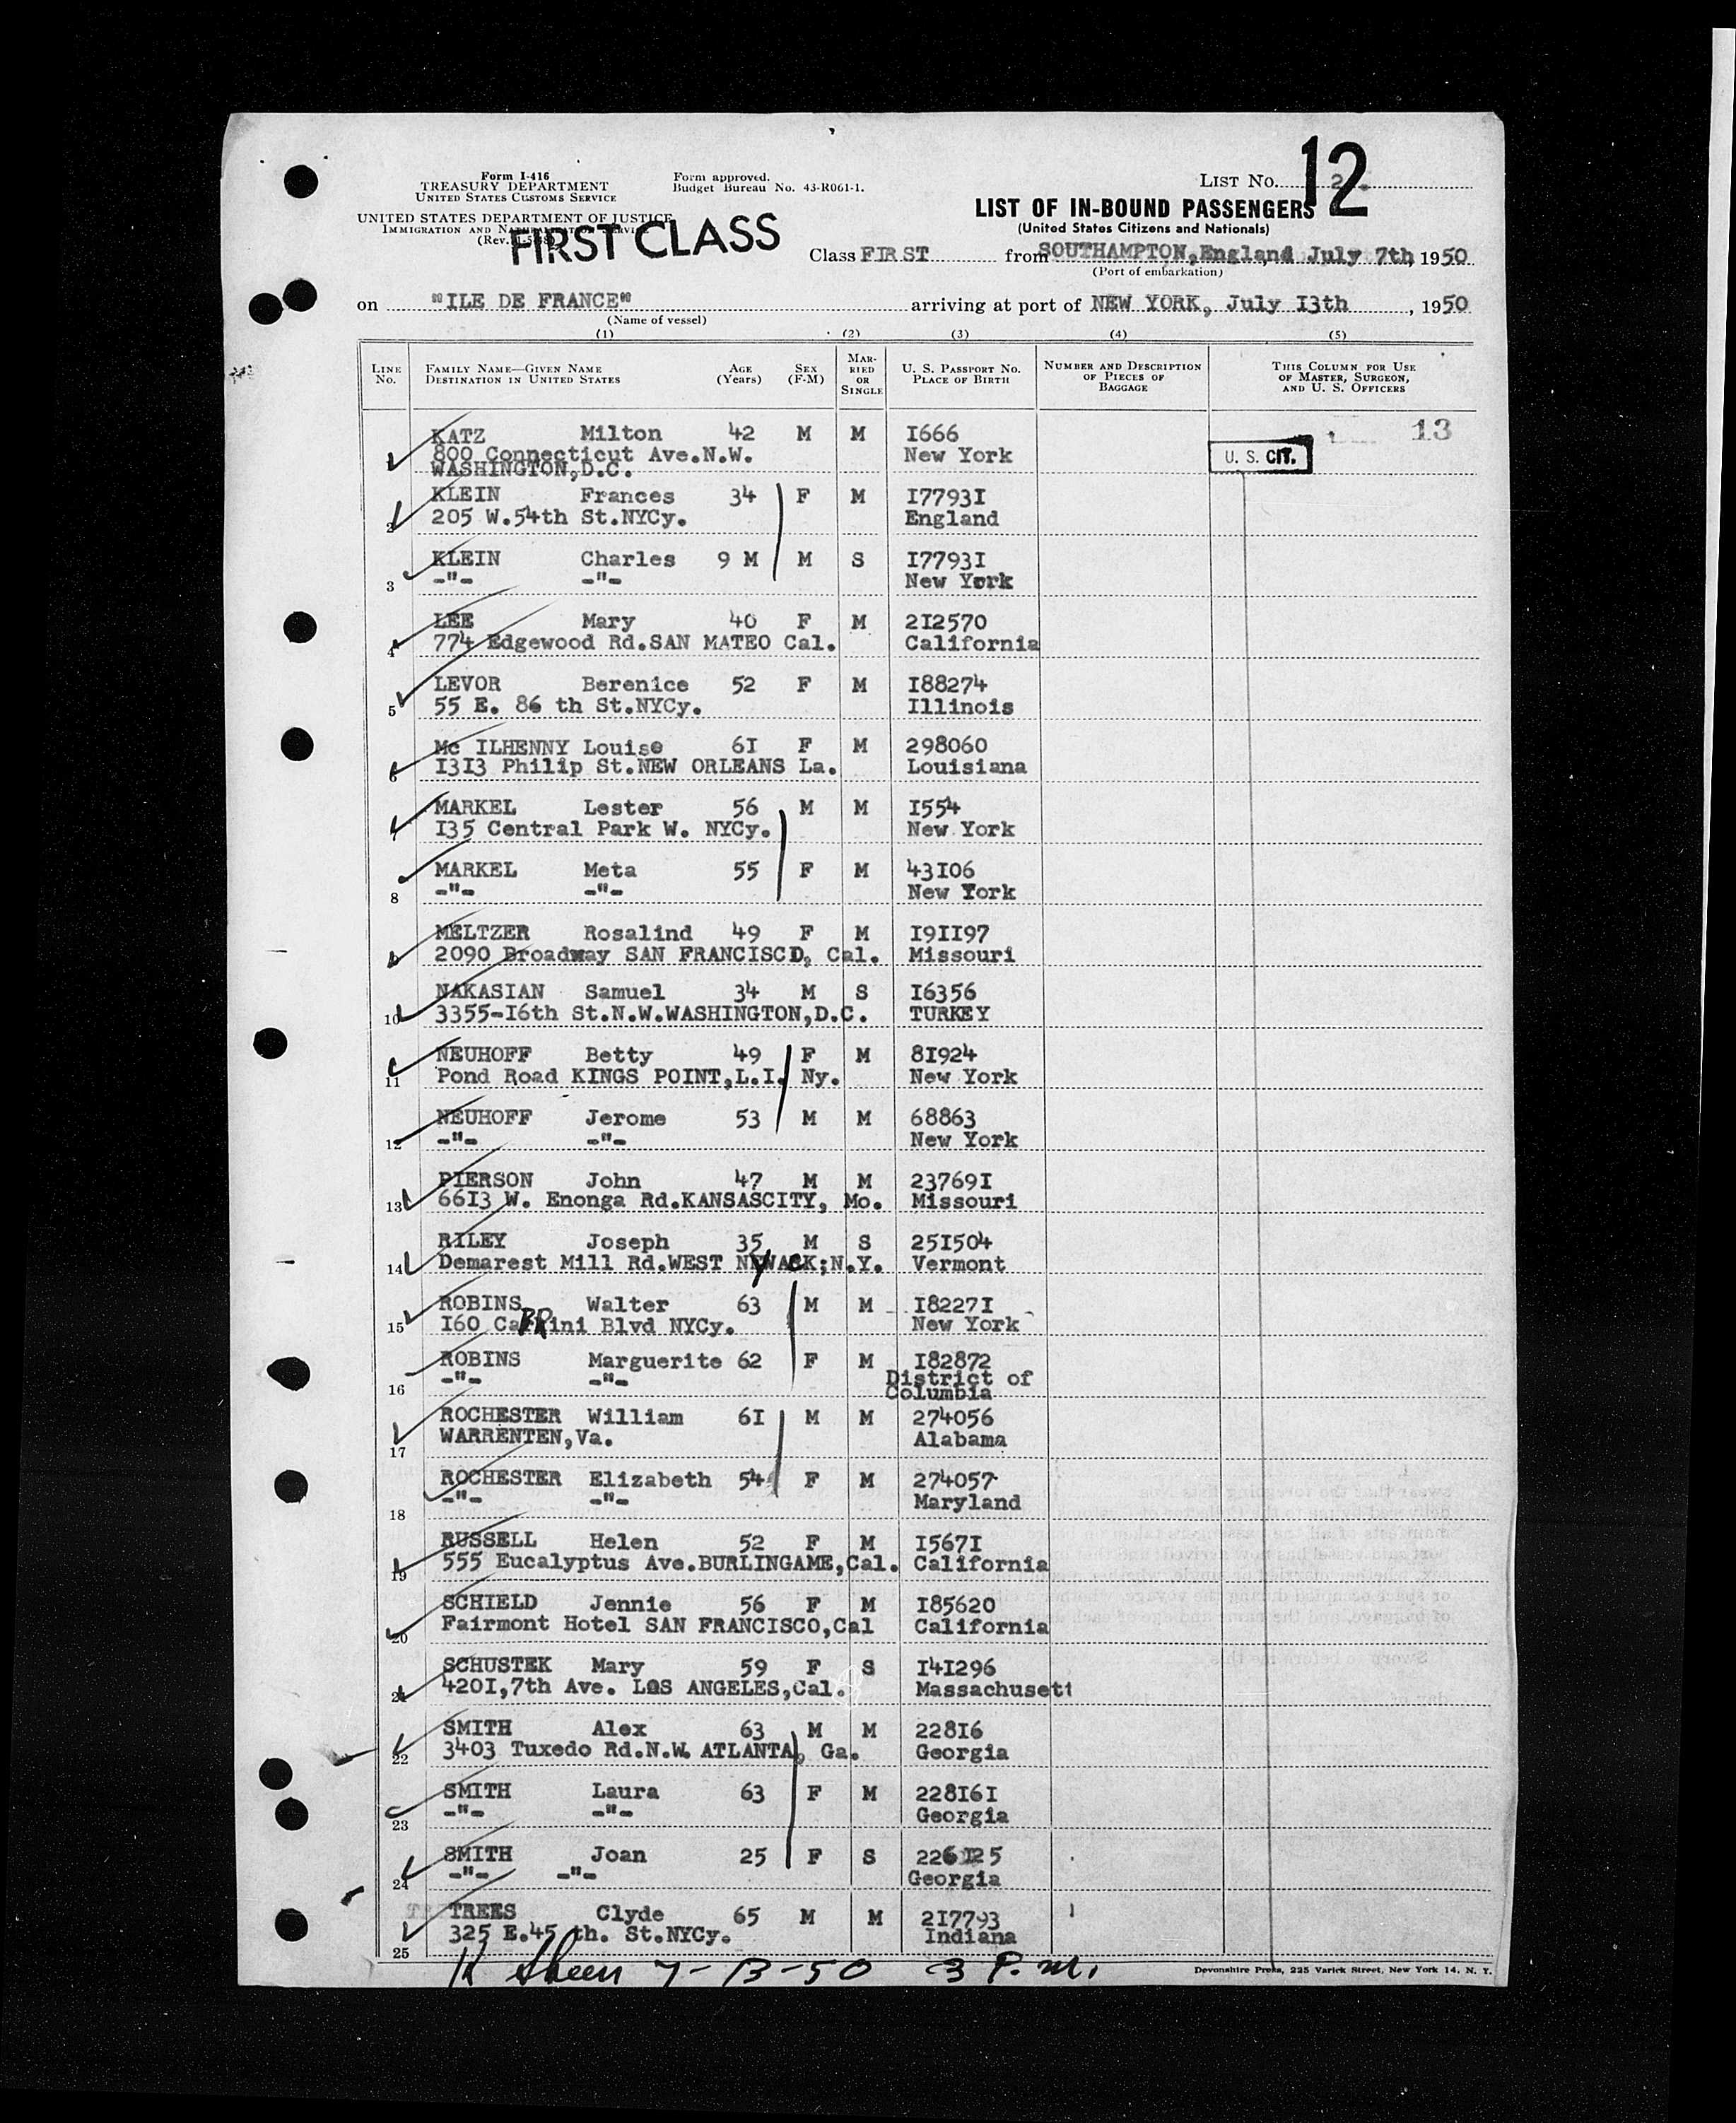 12
Form I-416
TREASURY DEPARTMENT
UNITED STATES CUSTOMS SERVICE
UNITED STATES DEPARTMENT OF JUSTICE
IMMIGRATION AND NATURALIZATION SERVICE
(Rev.
Form approved.
Budget Bureau No. 43-R061-1.
FIRST CLASS
LIST NO. 2.
LIST OF IN-BOUND PASSENGERS
(United States Citizens and Nationals)
Class FIRST from SOUTHAMPTON, England July 7th, 1950
(Port of embarkation)
on "ILE DE FRANCE" arriving at port of NEW YORK, July I3th, 1950
(Name of vessel)
(1) (2) (3) (4) (5)
LINE NO. FAMILY NAME—GIVEN NAME DESTINATION IN UNITED STATES AGE (Years) SEX (F-M) MARRIED OR SINGLE U. S. PASSPORT NO. PLACE OF BIRTH NUMBER AND DESCRIPTION OF PIECES OF BAGGAGE THIS COLUMN FOR USE OF MASTER, SURGEON, AND U. S. OFFICERS
KATZ Milton 42 M M I666 13
800 Connecticut Ave.N.W. New York U. S. CIT.
WASHINGTON,D.C.
KLEIN Frances 34 F M I7793I
2 205 W.54th St.NYCy. England
KLEIN Charles 9 M M S I7793I
3 -"- -"- New York
LEE Mary 40 F M 2I2570
4 774 Edgewood Rd.SAN MATEO Cal. California
LEVOR Berenice 52 F M I88274
5 55 E. 86 th St.NYCy. Illinois
Mc ILHENNY Louise 6I F M 298060
6 I3I3 Philip St.NEW ORLEANS La. Louisiana
MARKEL Lester 56 M M I554
7 I35 Central Park W. NYCy. New York
MARKEL Meta 55 F M 43I06
8 -"- -"- New York
MELTZER Rosalind 49 F M I9II97
9 2090 Broadway SAN FRANCISCO, Cal. Missouri
NAKASIAN Samuel 34 M S I6356
10 3355-I6th St.N.W.WASHINGTON,D.C. TURKEY
NEUHOFF Betty 49 F M 8I924
11 Pond Road KINGS POINT,L.I. Ny. New York
NEUHOFF Jerome 53 M M 68863
12 -"- -"- New York
PIERSON John 47 M M 23769I
13 66I3 W. Enonga Rd.KANSASCITY, Mo. Missouri
RILEY Joseph 35 M S 25I504
14 Demarest Mill Rd.WEST NYACK;N.Y. Vermont
ROBINS Walter 63 M M I8227I
15 I60 CaBRini Blvd NYCy. New York
ROBINS Marguerite 62 F M I82872
16 -"- -"- District of
Columbia
ROCHESTER William 6I M M 274056
17 WARRENTEN,Va. Alabama
ROCHESTER Elizabeth 54 F M 274057
18 -"- -"- Maryland
RUSSELL Helen 52 F M I567I
19 555 Eucalyptus Ave.BURLINGAME,Cal. California
SCHIELD Jennie 56 F M I85620
20 Fairmont Hotel SAN FRANCISCO,Cal California
SCHUSTEK Mary 59 F S I4I296
21 420I,7th Ave. LOS ANGELES,Cal. Massachusett
SMITH Alex 63 M M 228I6
22 3403 Tuxedo Rd.N.W. ATLANTA, Ga. Georgia
SMITH Laura 63 F M 228I6I
23 -"- -"- Georgia
SMITH Joan 25 F S
24 -"- -"- Georgia
TREES Clyde 65 M M 217793
25 325 E.45 th. St.NYCy. Indiana
7-13-50 3 P.M.
Devonshire Press, 225 Varick Street, New York 14, N. Y.